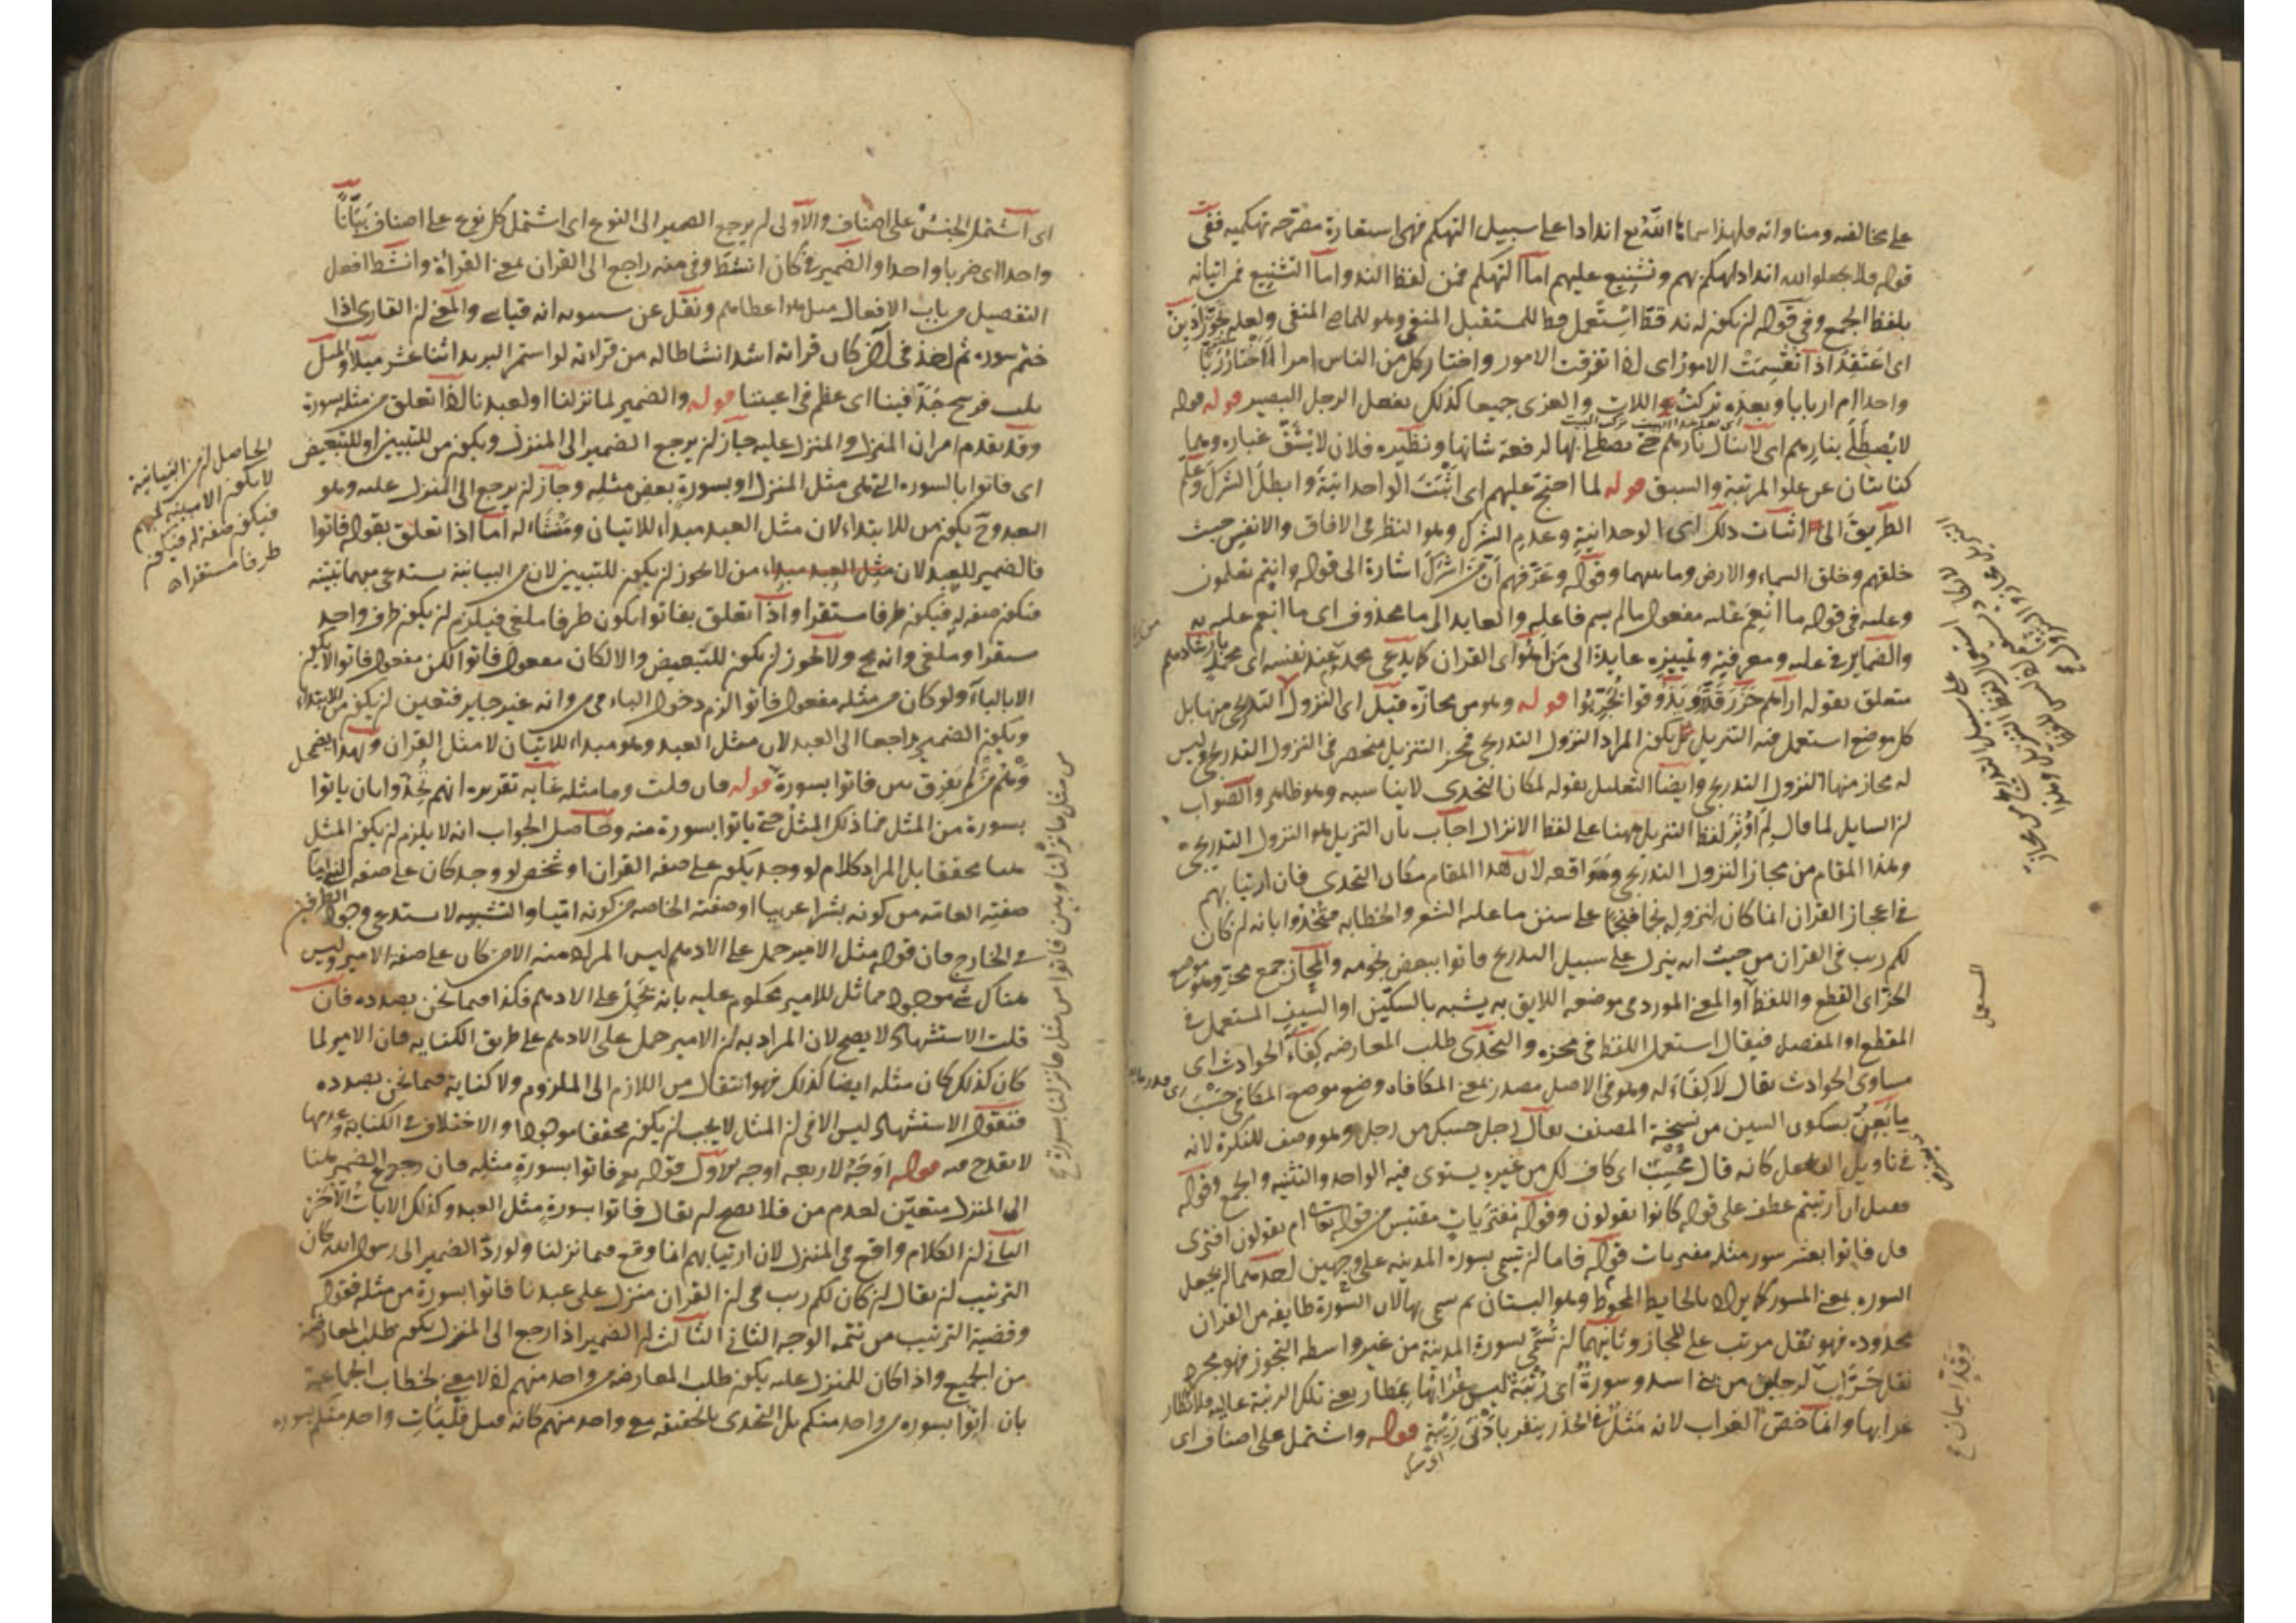 على مخالفته ومناواته فلهذا سماها الله تع اندادا على سبيل التهكم فهى استعارة مصرحة تهكميه ففى
قوله فلا تجعلوا لله اندادا تهكم بهم وتشنيع عليهم اما التهكم فمن لفظ الند واما التشنيع فمن اتيانه
بلفظ الجمع وفى قوله لن يكون له ند قط استعمل قط للمستقبل المنفى وهو للماضى المنفى ولعله جوز ادين
اى اعتقد اذا تقسمت الامور اى اذا تفرقت الامور واختار كل من الناس امرا ااختار ربا
واحدا ام اربابا وبعده تركت اللات والعزى جميعا كذلك يفعل الرجل البصير قوله
لا يصطلى بنارهم اى لا ينال نارهم حتى يصطلى بها لرفعة شانها ونظيره فلان لا يشق غباره وهما
كنايتان عن علو المرتبة والسبق قوله لما احتج عليهم اى اثبت الواحدانية وابطل الشرك وعلم
الطريق الى اثبات ذلك اى الوحدانية وعدم الشرك وهو النظر فى الافاق والانفس حيث
خلقهم وخلق السماء والارض وما بينهما وقوله وعرفهم ان من اشرك اشارة الى قوله وانتم تعلمون
وعليه فى قوله ما انعم عليه مفعول ما لم يسم فاعله والعايد الى ما محذوف اى ما انعم عليه به
والضماير فى عليه ومعرفته وتمييزه عايدة الى من اهو اى القران كما يدعى محمد ام عند نفسه اى محمد
متعلق بقوله ارادهم حزر قدر ويذوقوا يجربوا قوله وهو من مجازه قيل اى النزول التدريجى من قابل
كل موضع استعمل فيه التنزيل يكون المراد النزول التدريجى فمحز التنزيل منحصر فى النزول التدريجى وليس
له مجاز منها النزول التدريجى وايضا التعليل بقوله لمكان التحدى لا يناسبه وهو ظاهر والصواب
لن السايل لما قال لم اوثر لفظ التنزيل ههنا على لفظ الانزال اجاب بان التنزيل هو النزول التدريجى
وهذا المقام من مجاز النزول التدريجى ومواقعه لان هذا المقام مكان التحدى فان ارتيابهم
فى اعجاز القران انما كان لنزوله نجما فنجما على سنن ما عليه الشعر والخطابه فتحدوا بانه لن كان
لكم ريب فى القران من حيث انه ينزل على سبيل التدريج فاتوا ببعض نجومه والمحاز جمع محز وهو موضع
الحز اى القطع واللفظ او المعنى المورد فى موضعه اللايق به يشبه بالسكين او السيف المستعمل فى
المقطع او المفصل فيقال استعمل اللفظ فى محزه والتحدى طلب المعارضه كفاء الحوادث اى
مساوى الحوادث يقال لا كفاء له وهو فى الاصل مصدر بمعنى المكافاه وضع موضع المكافى حسب
ما يعن بسكون السين من نسخة المصنف يقال رجل حسبك من رجل وهو وصف للنكرة لانه
فى تاويل الفعل كانه قال محسب اى كاف لك من غيره يستوى فيه الواحد والتثنيه والجمع وقوله
فقيل ان ارتبتم عطف على قوله كانوا يقولون وقوله مفتريات مقتبس من قوله تعالى ام يقولون افترى
قل فاتوا بعشر سور مثله مفتريات قوله فاما لن تسمى بسورة المدينه على وجهين احدهما ان يجعل
السوره بمعنى المسور كما يراد بالحايط المحوط وهو البستان ثم سمى بها لان السورة طايفه من القران
محدوده فهو نقل مرتب على المجاز وثانيهما لن تسمى بسورة المدينة من غير واسطه التجوز فهو مجرد
نقل حراب لرجلين من بنى اسد وسورة اى رتبة ليس غرابها بمطار يعنى تلك الرتبة عاليه فلا يطار
غرابها وانما خص الغراب لانه مثل فى الحذر ينفر بادنى ريبة قوله واشتمل على اصناف اى
اى اشتمل الجنس على اصناف والاولى لن يرجع الضمير الى النوع اى اشتمل كل نوع على اصناف بيانا
واحدا اى ضربا واحدا والضمير فى كان انشط وفى منه راجع الى القران بمعنى القراة وانشط افعل
التفضيل من باب الافعال مثل هو اعطاهم ونقل عن سيبويه انه قياس والمعنى لن القارى اذا
ختم سوره ثم اخذ فى اخر كان قراته اشد انشاطا له من قراته لو استمر البريد اثنا عشر ميلا والميل
ثلث فرسخ جد فينا اى عظم فى اعيننا قوله والضمير لما نزلنا او لعبدنا اذا تعلق من مثله بسورة
وقد تقدم امران المنزل والمنزل عليه جاز لن يرجع الضمير الى المنزل ويكون من للتبيين او للتبعيض
اى فاتوا بالسوره التى هى مثل المنزل او بسورة بعض مثله وجاز لن يرجع الى المنزل عليه وهو
العبد وح يكون من للابتداء لان مثل العبد مبداء للاتيان ومنشاء له اما اذا تعلق بقوله فاتوا
فالضمير للعبد لان من لا يجوز لن يكون للتبيين لان من البيانية يستدعى مبهما تبينه
فيكون صفة له فيكون ظرفا مستقرا واذا تعلق بفاتوا يكون ظرفا ملغى فيلزم لن يكون ظرف واحد
مستقرا وملغى وانه مح ولا يجوز لن يكون للتبعيض والا لكان مفعول فاتوا لكن مفعول فاتوا لا يكون
الا بالباء ولو كان من مثله مفعول فاتوا لزم دخول الباء فى من وانه غير جايز فتعين لن يكون من للابتداء
ويكون الضمير راجعا الى العبد لان مثل العبد وهو مبداء للاتيان لا مثل القران وبهذا يضمحل
وهم من لم يفرق بين فاتوا بسورة قوله فان قلت وما مثله غايه تقريره انهم تحدوا بان ياتوا
بسورة من المثل فما ذلك المثل حتى ياتوا بسورة منه وحاصل الجواب انه لا يلزم لن يكون المثل
مثلا محققا بل المراد كلام لو وجد يكون على صفه القران او شخص لو وجد كان على صفه النبى اما
صفته العامه من كونه بشرا عربيا او صفته الخاصه من كونه اميا والتشبيه لا يستدعى وجود الطرفين
فى الخارج فان قوله مثل الامير حمل على الادهم ليس المراد منه الا من كان على صفه الامير وليس
هناك شى موجود مماثل للامير محكوم عليه بانه يحمل على الادهم فكذا فيما نحن بصدده فان
قلت الاستشهاد لا يصح لان المراد به لن الامير حمل على الادهم على طريق الكنايه فان الامير لما
كان كذلك كان مثله ايضا كذلك فهو انتقال من اللازم الى الملزوم ولا كناية فيما نحن بصدده
فنقول الاستشهاد ليس الا فى لن المثل لا يجب لن يكون محققا موجودا والاختلاف فى الكنايه وعدمها
لا يقدح فيه قوله اوجه لاربعه اوجه الاول قوله تع فاتوا بسورة مثله فان رجع الضمير هنا
الى المنزل متعين لعدم من فلا يصح لن يقال فاتوا بسورة مثل العبد وكذلك الايات الاخر
الثانى لن الكلام واقع فى المنزل لان ارتيابهم انما وقع فيما نزلنا ولو رد الضمير الى رسول الله كان
الترتيب لن يقال لن كان لكم ريب فى لن القران منزل على عبدنا فاتوا بسورة من مثله فقوله
وقضية الترتيب من تتمه الوجه الثانى الثالث لن الضمير اذا رجع الى المنزل يكون طلب المعارضه
من الجميع واذا كان للمنزل عليه يكون طلب المعارضه من واحد منهم اذ لا معنى لخطاب الجماعة
بان ائتوا بسوره من واحد منكم بل التحدى بالحقيقه مع واحد منهم كانه قيل فليات واحد منكم بسوره
الحاصل لن من البيانية
لا يكون الا مبينة لمبهم
فيكون صفة له فيكون
ظرفا مستقرا ه
من مثل ما نزلنا وبين فاتوا من مثل ما نزلنا بسورة